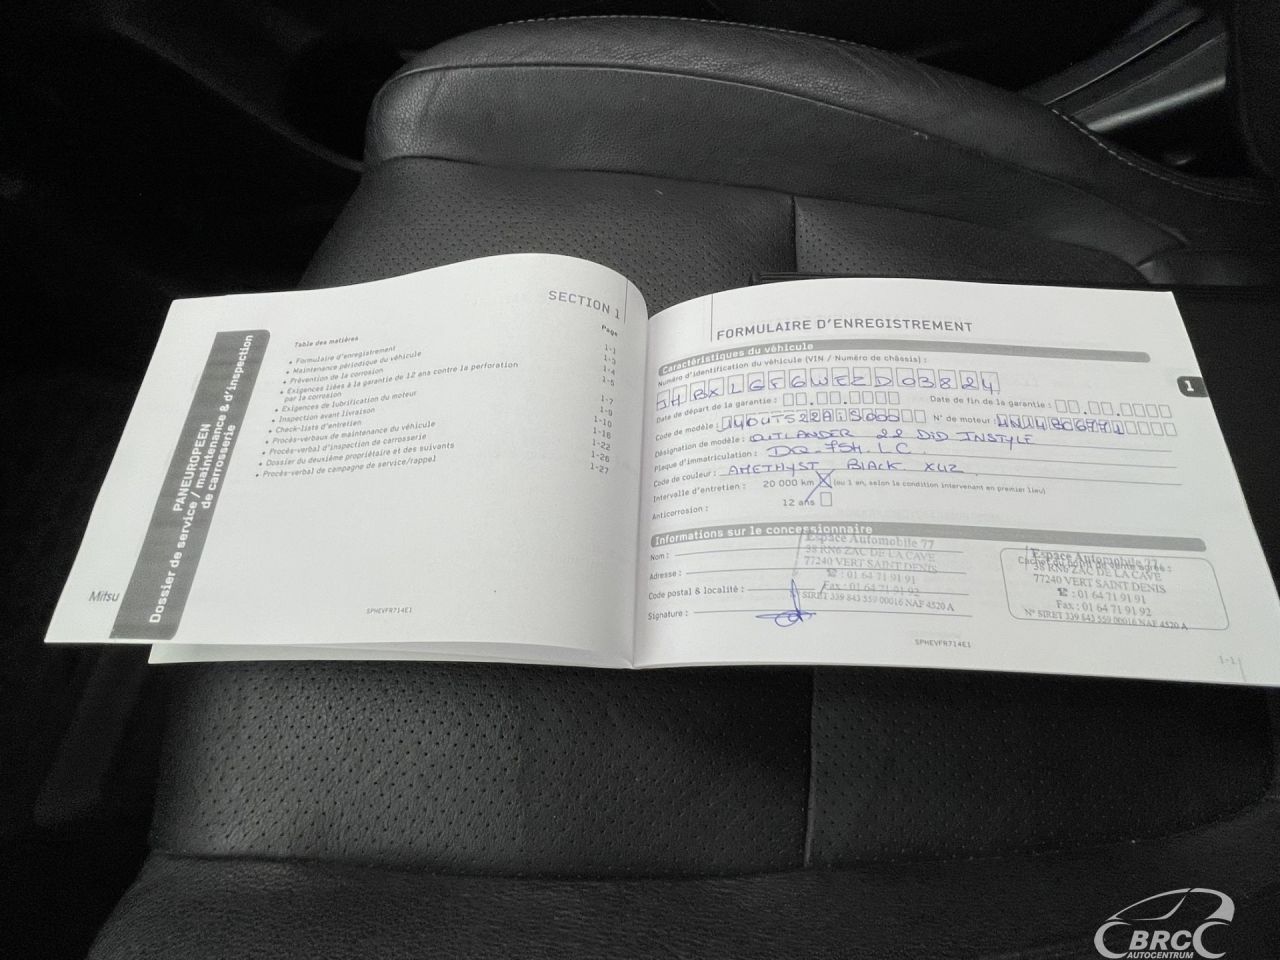 SECTION 1
Page
Table des matières
• Formulaire d'enregistrement 1-1
• Maintenance périodique du véhicule 1-3
• Prévention de la corrosion 1-4
• Exigences liées à la garantie de 12 ans contre la perforation par la corrosion 1-5
• Exigences de lubrification du moteur 1-7
• Inspection avant livraison 1-9
• Check-lists d'entretien 1-10
• Procès-verbaux de maintenance du véhicule 1-16
• Procès-verbal d'inspection de carrosserie 1-22
• Dossier du deuxième propriétaire et des suivants 1-26
• Procès-verbal de campagne de service/rappel 1-27
PANEUROPEEN
Dossier de service / maintenance & d'inspection
de carrosserie
Mitsu
SPHEVFR714E1
FORMULAIRE D'ENREGISTREMENT
Caractéristiques du véhicule
1
Numéro d'identification du véhicule (VIN / Numéro de châssis) :
Date de départ de la garantie : Date de fin de la garantie :
Code de modèle : N° de moteur :
Désignation de modèle : OUTLANDER 22 DiD INSTYLE
Plaque d'immatriculation : DQ.754.LC.
Code de couleur : AMETHYST BLACK X42
Intervalle d'entretien : 20 000 km (ou 1 an, selon la condition intervenant en premier lieu)
Anticorrosion : 12 ans
Informations sur le concessionnaire
Nom :
Adresse :
Code postal & localité :
Signature :
Espace Automobile 77
38 RN6 ZAC DE LA CAVE
77240 VERT SAINT DENIS
☎ : 01 64 71 91 91
Fax : 01 64 71 91 92
SIRET 339 843 559 00016 NAF 4520 A
Espace Automobile 77
38 RN6 ZAC DE LA CAVE
77240 VERT SAINT DENIS
☎ : 01 64 71 91 91
Fax : 01 64 71 91 92
N° SIRET 339 843 559 00016 NAF 4520 A
SPHEVFR714E1
1-1
BRC
AUTOCENTRUM